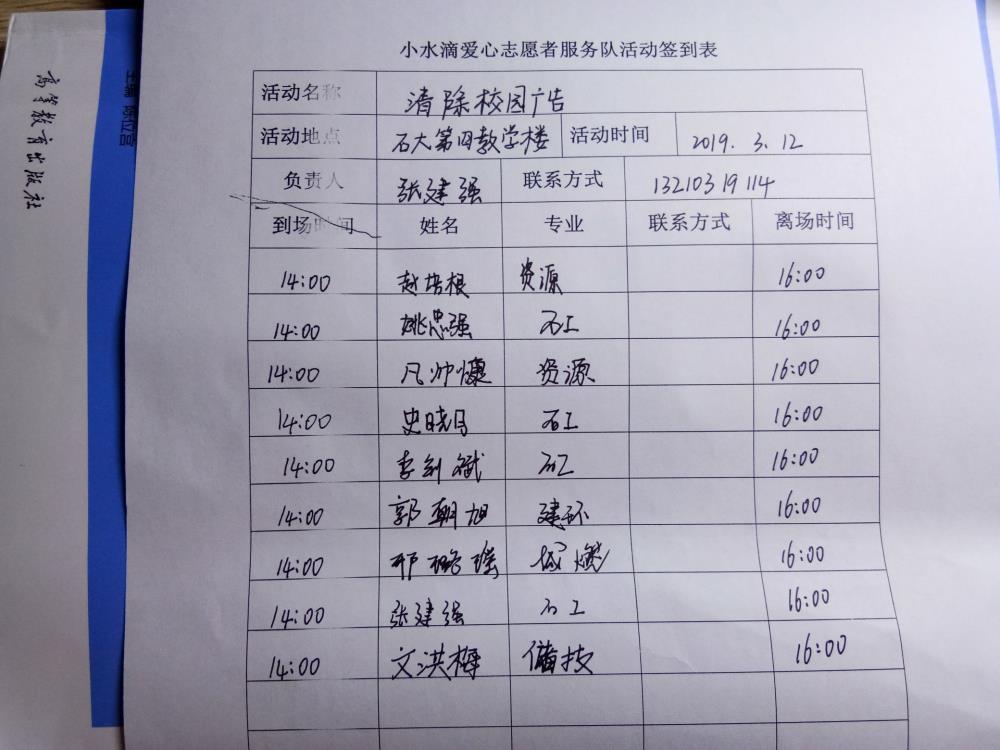 小水滴爱心志愿者服务队活动签到表
活动名称 清除校园广告
活动地点 石大第四教学楼 活动时间 2019. 3. 12
负责人 张建强 联系方式 13210319114
到场时间 姓名 专业 联系方式 离场时间
14:00 赵培根 资源 16:00
14:00 姚忠强 石工 16:00
14:00 凡帅慷 资源 16:00
14:00 史晓丹 石工 16:00
14:00 李剑斌 石工 16:00
14:00 郭朝旭 建环 16:00
14:00 邢璐瑶 城燃 16:00
14:00 张建强 石工 16:00
14:00 文洪梅 储技 16:00
高等教育出版社
主编